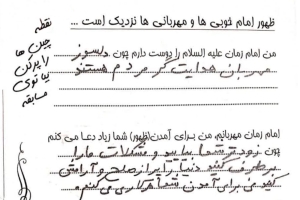 ظهور امام خوبی ها و مهربانی ها نزدیک است ...
نقطه
چین ها
را پر کن
بیا توی
مسابقه
من امام زمان علیه السلام را دوست دارم چون دلسوز
مهربان هدایت گر مردم هستند
امام زمان مهربانم، من برای آمدن(ظهور) شما زیاد دعا می کنم
چون زودتر شما بیایید و مشکلات ما را
برطرف کنید دنیا را پر از صلح و آرامش
کنید می برای آمدن شما